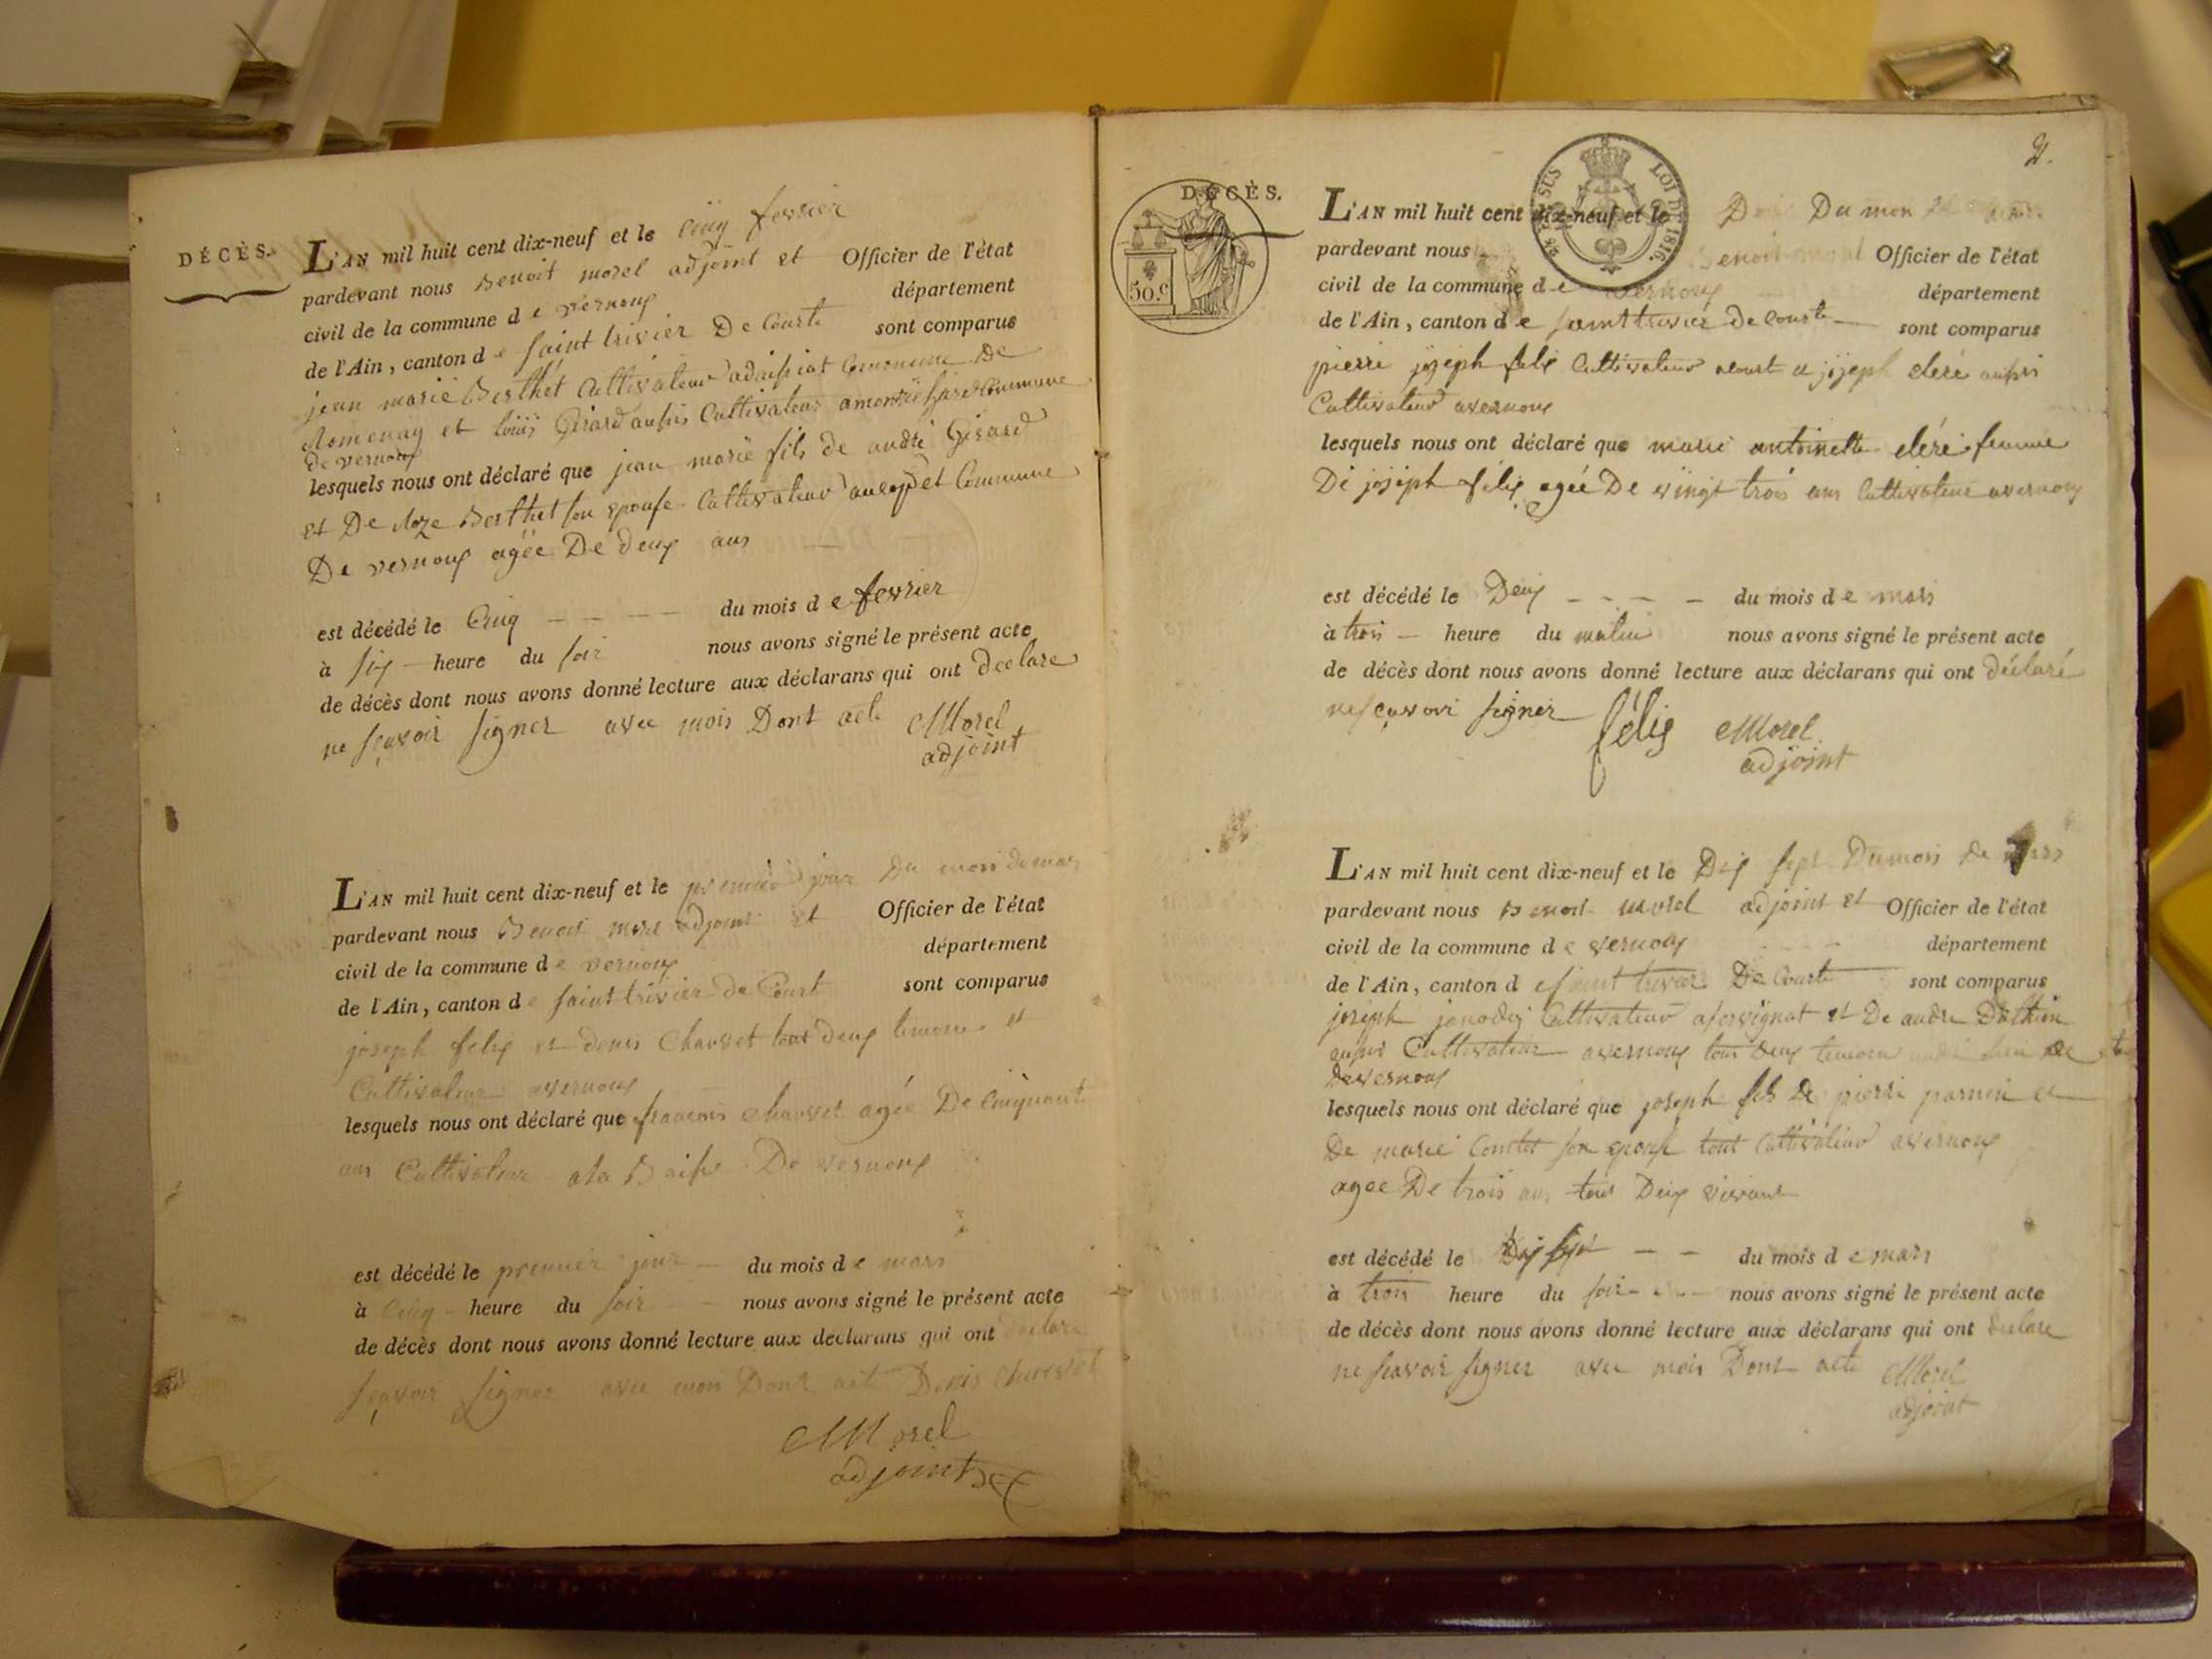 DÉCÈS.
L'AN mil huit cent dix-neuf et le Cinq fevrier
pardevant nous Benoit morel adjoint et Officier de l'état
civil de la commune de vernoux département
de l'Ain, canton de saint trivier De Courte sont comparus
jean marie Berthet Cultivateur Commune De
Romenay et louis Girard aussis Cultivateur Commune
De vernoux
lesquels nous ont déclaré que jean marie fils de andré Girard
et De Roze Berthet son epouse Cultivateur Commune
De vernoux agée De deux ans
est décédé le Cinq - - - - du mois de fevrier
à six heure du soir nous avons signé le présent acte
de décès dont nous avons donné lecture aux déclarans qui ont declare
ne sçavoir signer avec mois Dont acte Morel
adjoint
L'AN mil huit cent dix-neuf et le premier jour Du mois de mars
pardevant nous Benoit morel adjoint et Officier de l'état
civil de la commune de vernoux département
de l'Ain, canton de saint trivier de Court sont comparus
joseph felix et denis Chavvet tout deux temoins et
Cultivateur avernoux
lesquels nous ont déclaré que francois chavvet agée De Cinquante
ans Cultivateur ala De vernoux
est décédé le premier jour du mois de mars
à Cinq heure du soir nous avons signé le présent acte
de décès dont nous avons donné lecture aux declarans qui ont declare
sçavoir signer avec mois Dont acte Denis Chavvet
Morel
adjoint
2.
DÉCÈS.
50.c
LOI DE 1816.
L'AN mil huit cent dix-neuf et le Du mois
pardevant nous Benoit morel Officier de l'état
civil de la commune de vernoux département
de l'Ain, canton de saint trivier de courte sont comparus
pierre joseph felix Cultivateur acourt et josjeph cléré aussi
Cultivateur avernoux
lesquels nous ont déclaré que marie antoinette cléré femme
De joseph félix agée De vingt trois ans Cultivateur avernoux
est décédé le Deux - - - - du mois de mars
à trois heure du matin nous avons signé le présent acte
de décès dont nous avons donné lecture aux déclarans qui ont déclaré
ne sçavoir signer félix Morel
adjoint
L'AN mil huit cent dix-neuf et le Dix sept Du mois de mars
pardevant nous Benoit morel adjoint et Officier de l'état
civil de la commune de vernoux département
de l'Ain, canton de saint trivier De Courte sont comparus
joseph Cultivateur aservignat et De andre
aussi Cultivateur avernoux tous deux temoins
de vernoux
lesquels nous ont déclaré que joseph fils De pierre et
De marie Comtet son epouse tout Cultivateur avernoux
agée De trois ans tous Deux vivant
est décédé le Dix sept - - du mois de mars
à trois heure du soir - - - nous avons signé le présent acte
de décès dont nous avons donné lecture aux déclarans qui ont declare
ne scavoir signer avec mois Dont acte Morel
adjoint